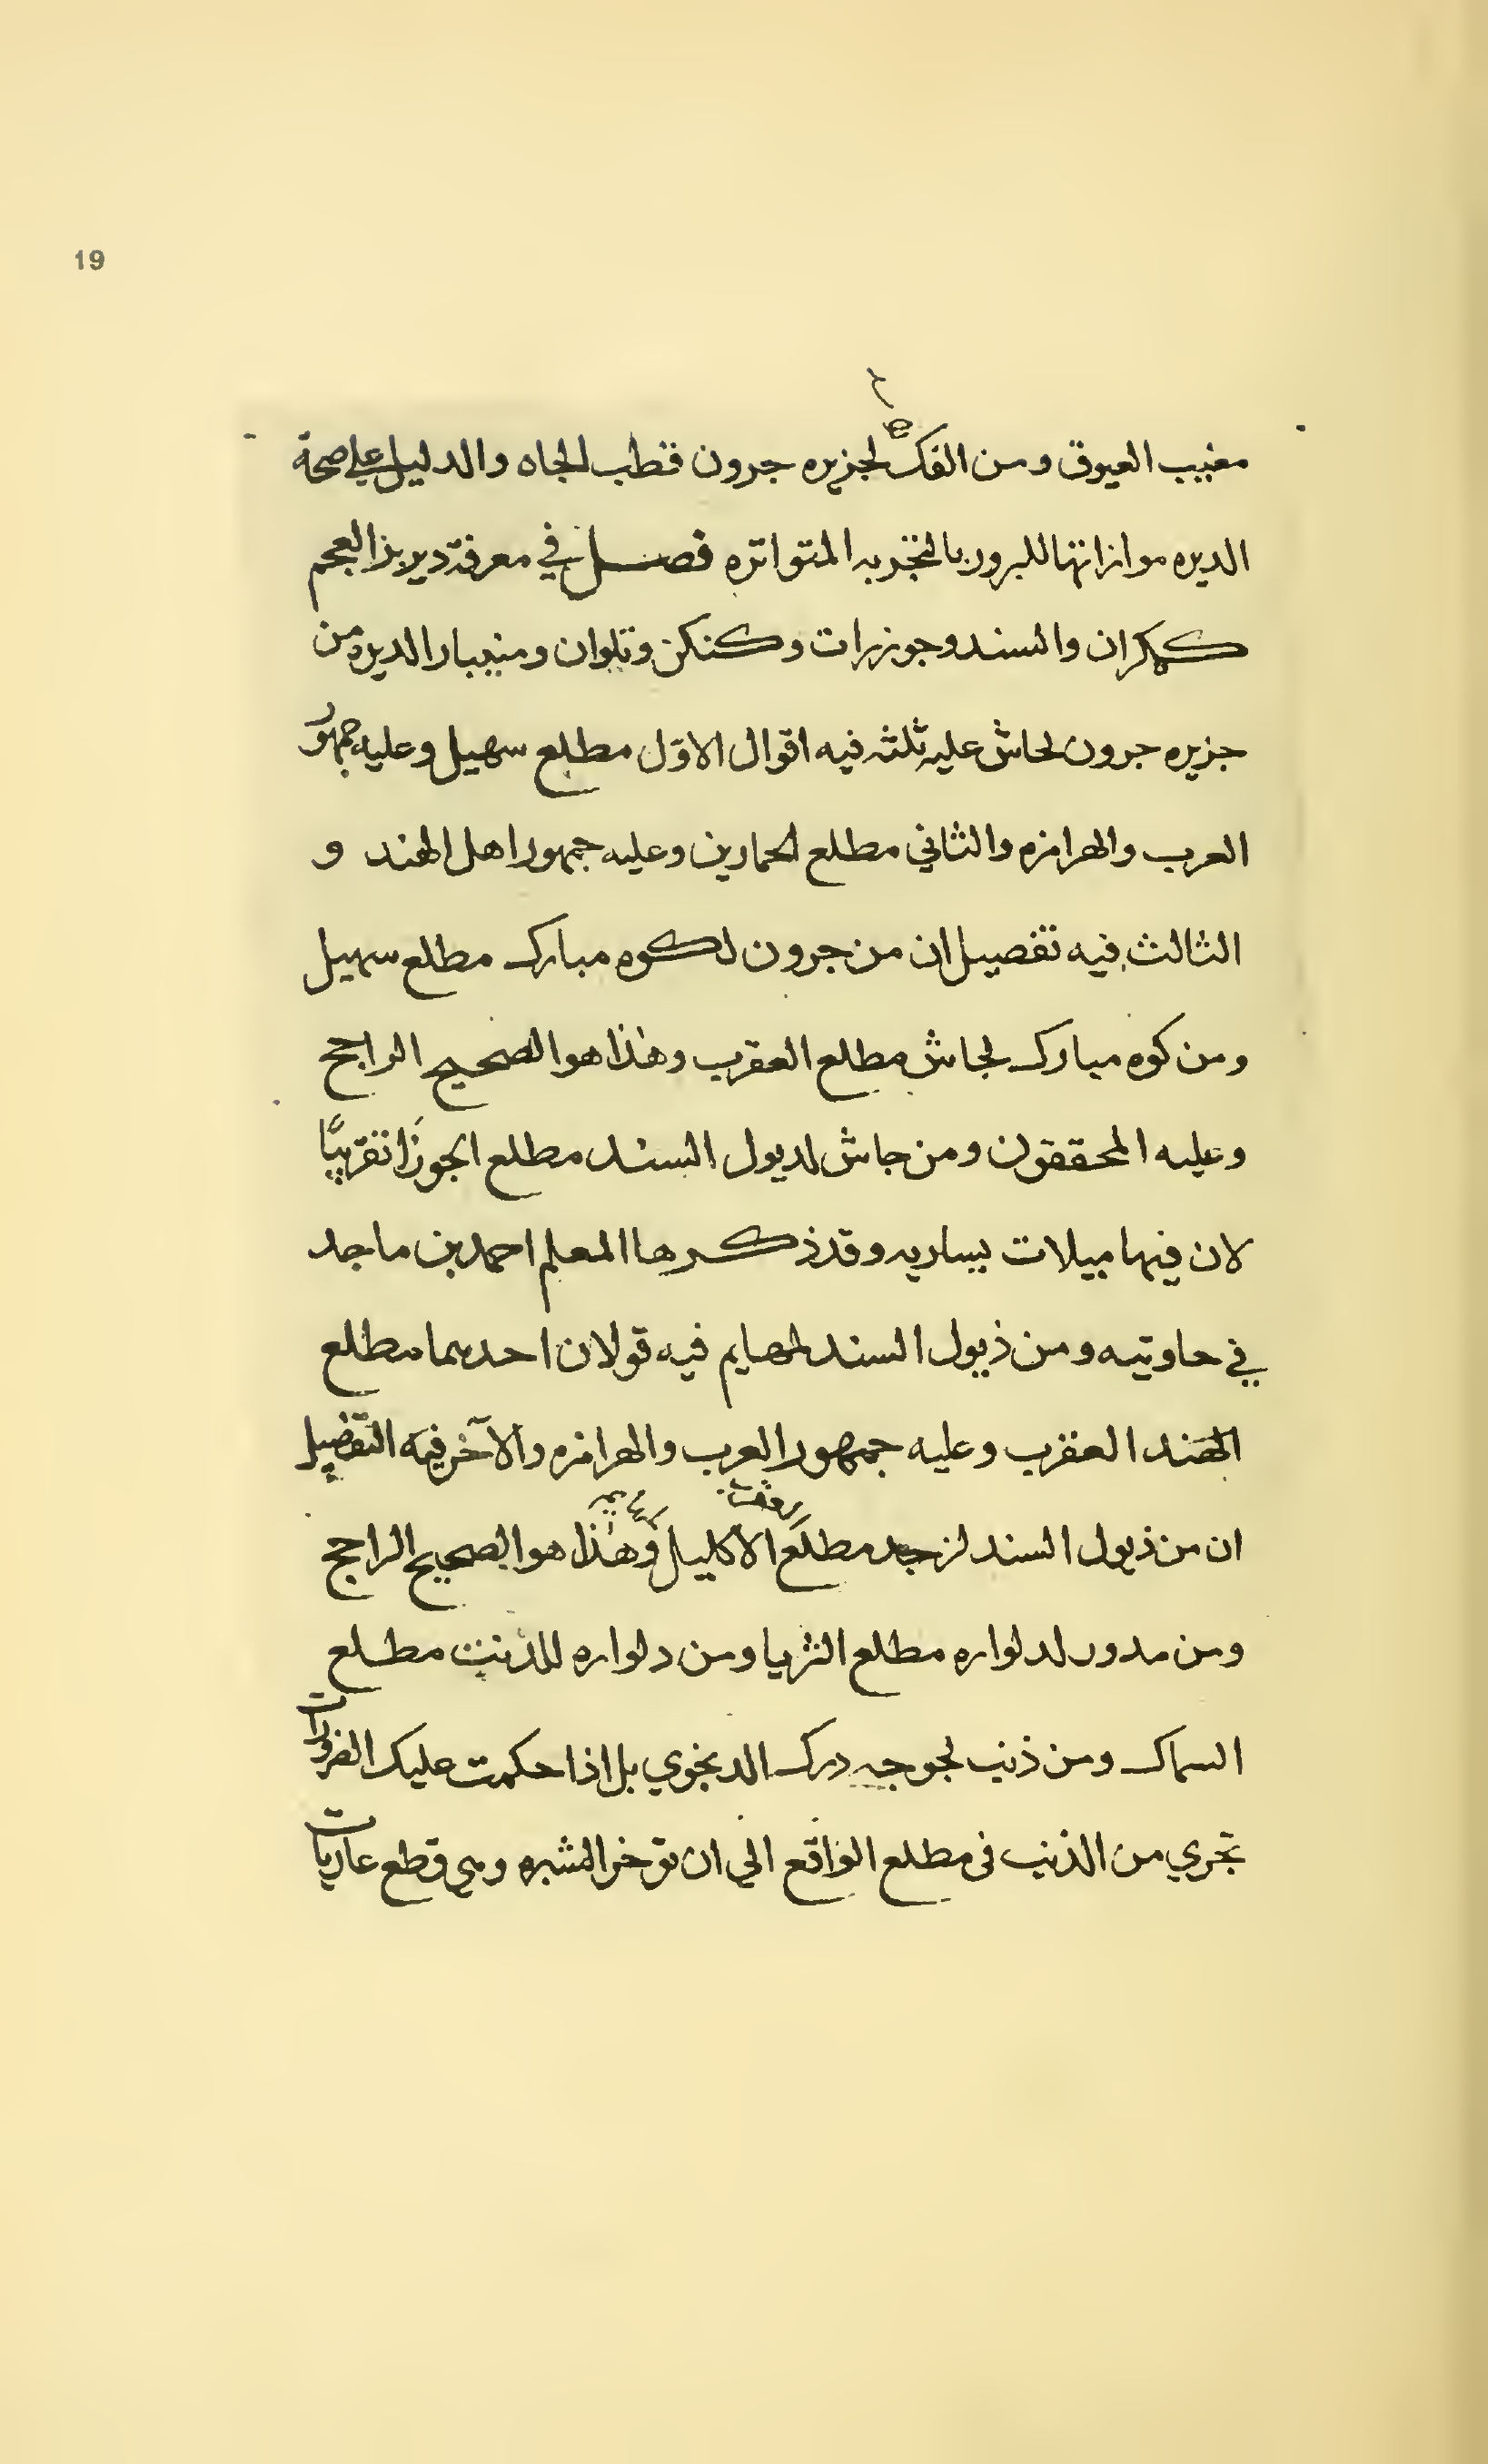 19
مغيب العيوق ومن الفك لجزيره جرون قطب الجاه والدليل على صحة
الديره موازاتها للبرور بالتجربه المتواتره فصل في معرفة دير بر العجم
كمكران والسند وجوزرات وكنكن وتلوان ومنيبار الديره من
جزيره جرون لجاش عليه ثلثه فيه اقوال الاوّل مطلع سهيل وعليه جمهور
العرب والهرامزه والثاني مطلع الحمارين وعليه جمهور اهل الهند و
الثالث فيه تفصيل ان من جرون لكوه مبارك مطلع سهيل
ومن كوه مبارك لجاش مطلع العقرب وهذا هو الصحيح الراجح
وعليه المحققون ومن جاش لديول السند مطلع الجوزا تقريبًا
لان فيها ميلات يساريه وقد ذكرها المعلم احمد بن ماجد
في حاويته ومن ذيول السند لمهايم فيه قولان احدهما مطلع
الهند العقرب وعليه جمهور العرب والهرامزه والآخر فيه التفضيل
ان من ذيول السند لزجد مطلع الاكليل وهذا هو الصحيح الراجح
ومن مدور لدلواره مطلع الثريا ومن دلواره للذنب مطلع
السماك ومن ذنب لجوجه درك الدبخوي بل اذا حكمت عليك الضرورات
تجري من الذنب في مطلع الواقع الي ان توخر المشبره وهي قطع عاريات